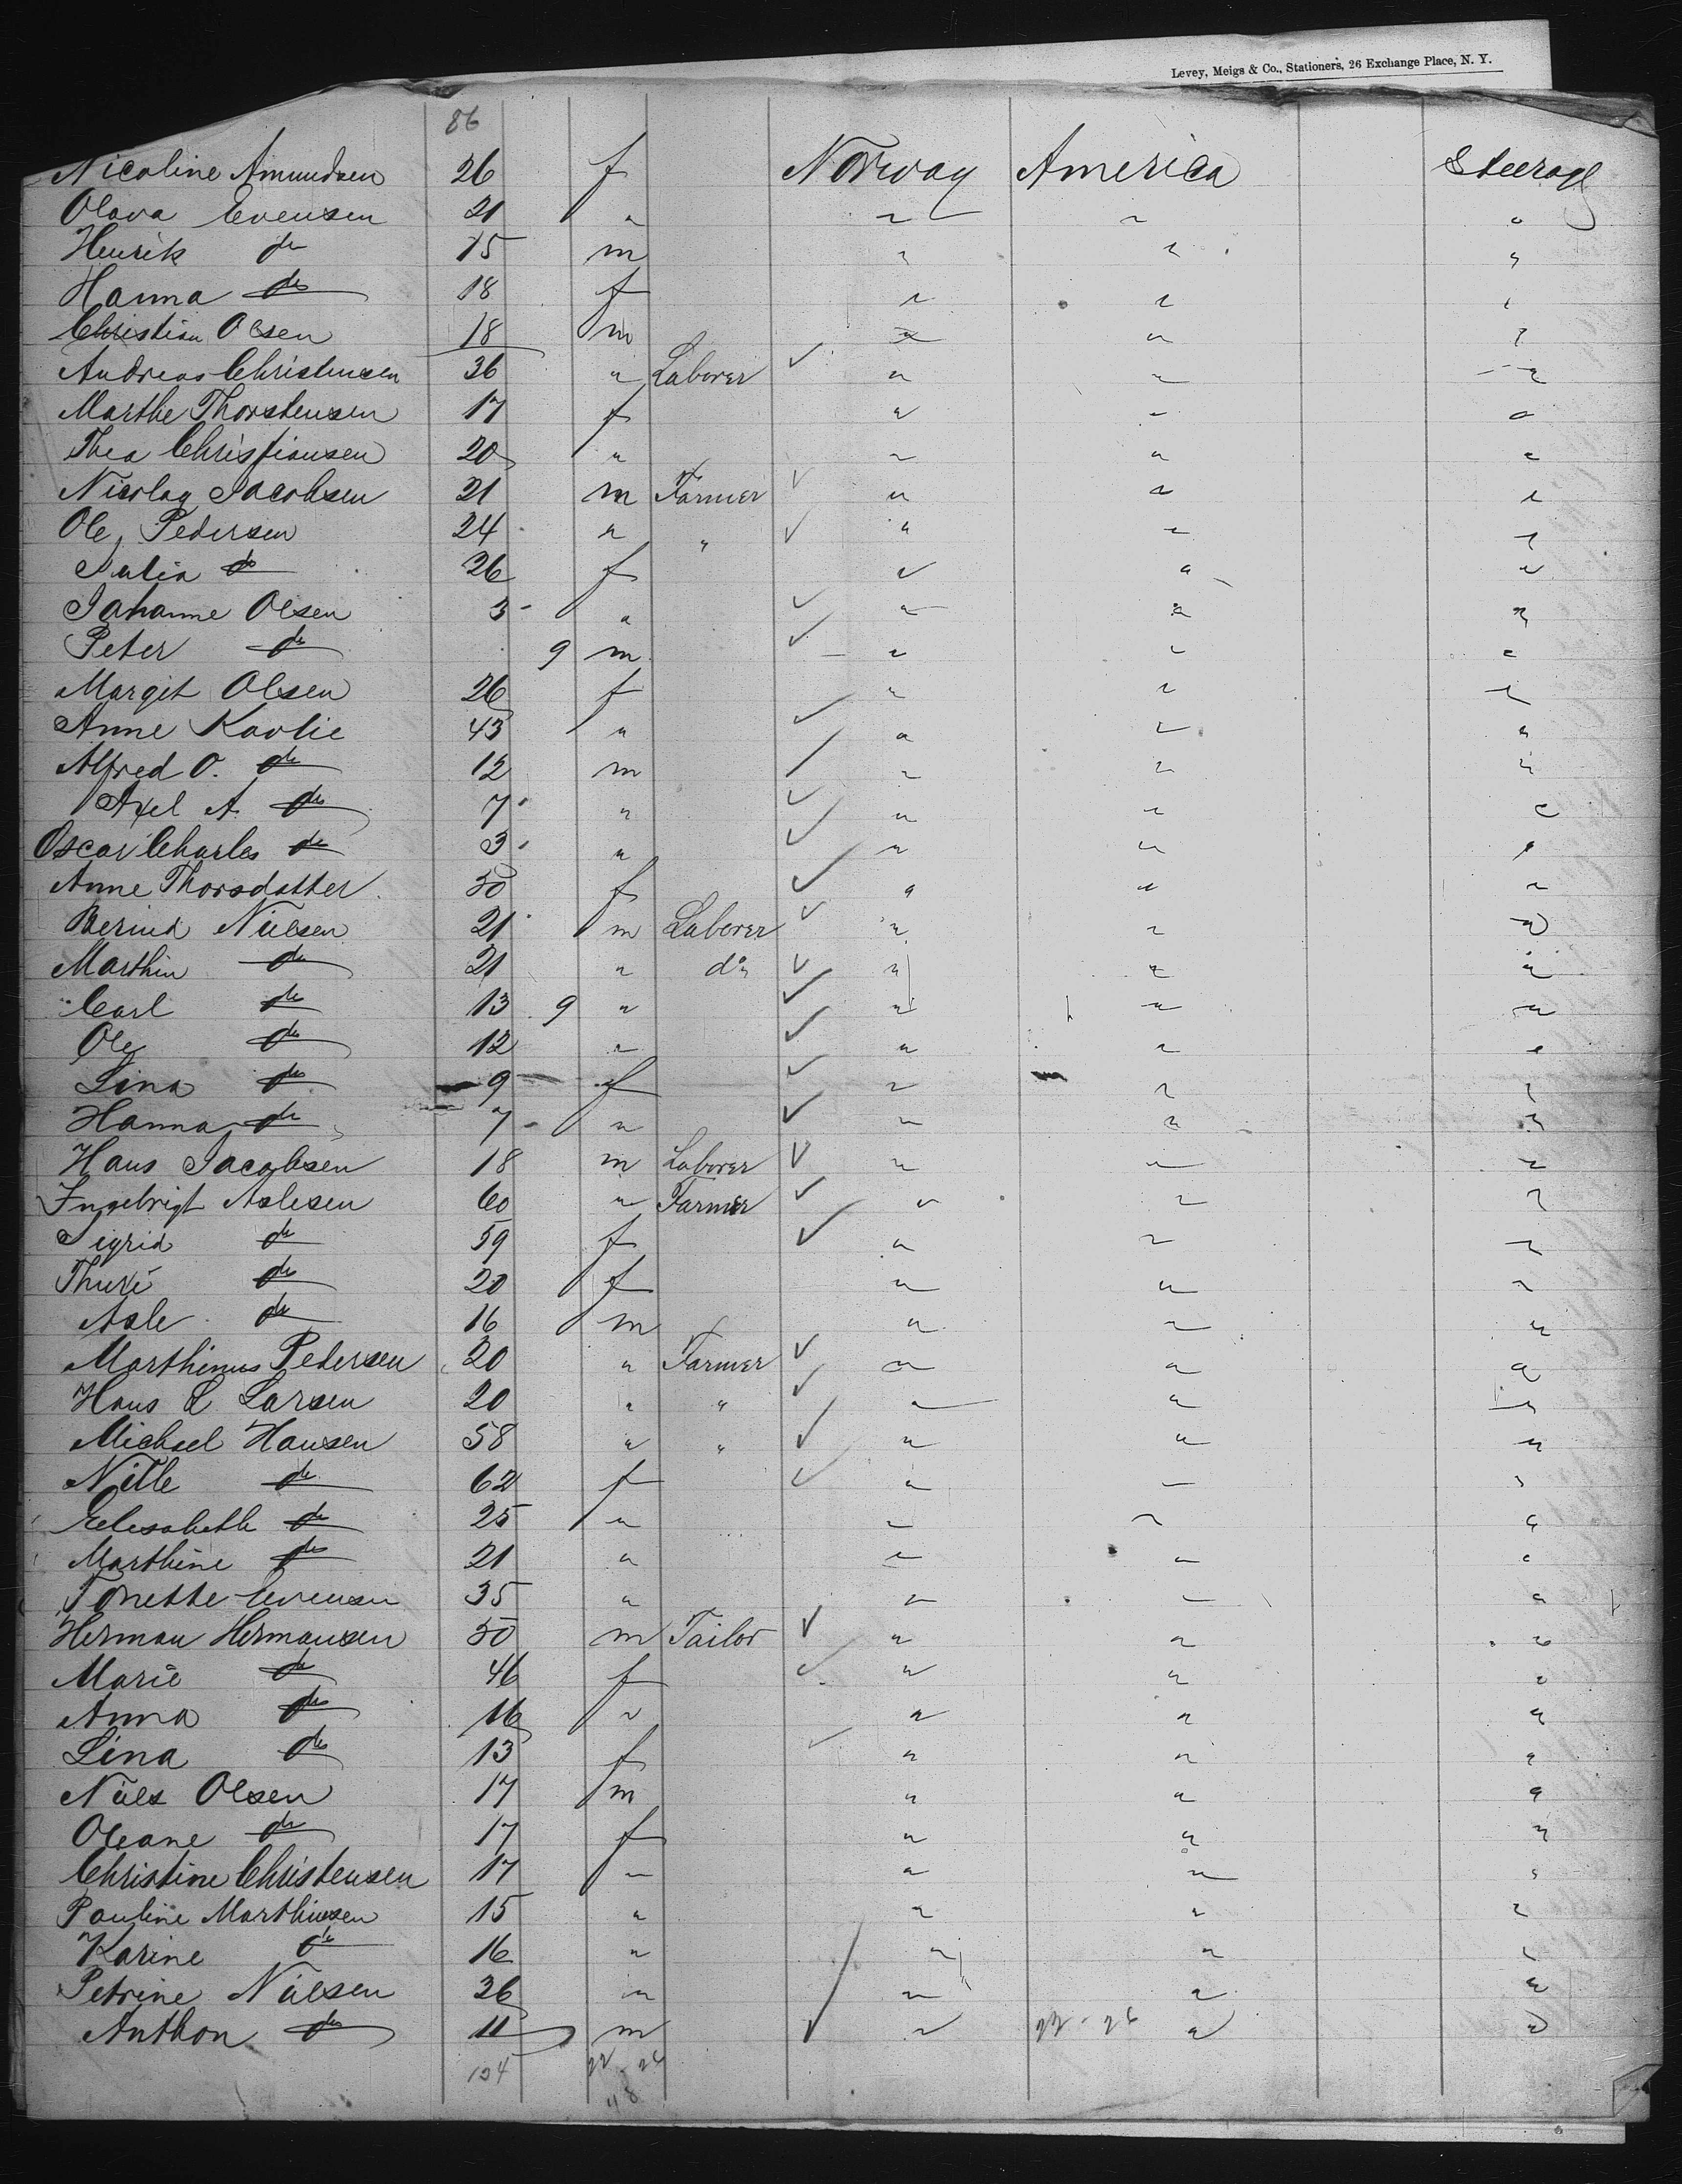 Levey, Meigs & Co., Stationers, 26 Exchange Place, N. Y.
86
Nicoline Amundsen 26 f Norway America Steerage
Olava Evensen 21 " " " "
Henrik do 15 m " " "
Hanna do 18 f " " "
Christian Olsen 18 m " " "
Andreas Christensen 36 " Laborer ✓ " " "
Marthe Thorstensen 17 f " " "
Thea Christiansen 20 " " " "
Nicolay Jacobsen 21 m Farmer ✓ " " "
Ole Pedersen 24 " " ✓ " " "
Julia do 26 f " " "
Johanne Olsen 3 " ✓ " " "
Peter do 9 m ✓ " " "
Margit Olsen 26 f " " "
Anne Kavlie 43 " ✓ " " "
Alfred O. do 12 m ✓ " " "
Axel A. do 7 " ✓ " " "
Oscar Charles do 3 " ✓ " " "
Anne Thorsdatter 50 f ✓ " " "
Bernid Nielsen 21 m Laborer ✓ " " "
Marthin do 21 " do ✓ " " "
Carl do 13 9 " ✓ " " "
Ole do 12 " ✓ " " "
Lina do 9 f ✓ " " "
Hanna do 7 " ✓ " " "
Hans Jacobsen 18 m Laborer ✓ " " "
Ingebrigt Aslesen 60 " Farmer ✓ " " "
Sigrid do 59 f ✓ " " "
Thuri do 20 f " " "
Asle do 16 m " " "
Marthinus Pedersen 20 " Farmer ✓ " " "
Hans L Larsen 20 " " ✓ " " "
Michael Hansen 58 " " ✓ " " "
Nille do 62 f ✓ " " "
Elisabeth do 25 " " " "
Marthine do 21 " " " "
Tonette Evensen 35 " " " "
Herman Hermansen 50 m Tailor ✓ " " "
Marie do 46 f ✓ " " "
Anna do 16 " " " "
Lina do 13 f ✓ " " "
Niels Olsen 17 m " " "
Oleane do 17 f " " "
Christine Christensen 17 " " " "
Pauline Marthinsen 15 " " " "
Karine do 16 " " " "
Petrine Nielsen 36 " ✓ " " "
Anthon do 11 m ✓ " 22-26 " "
124 22-26
48